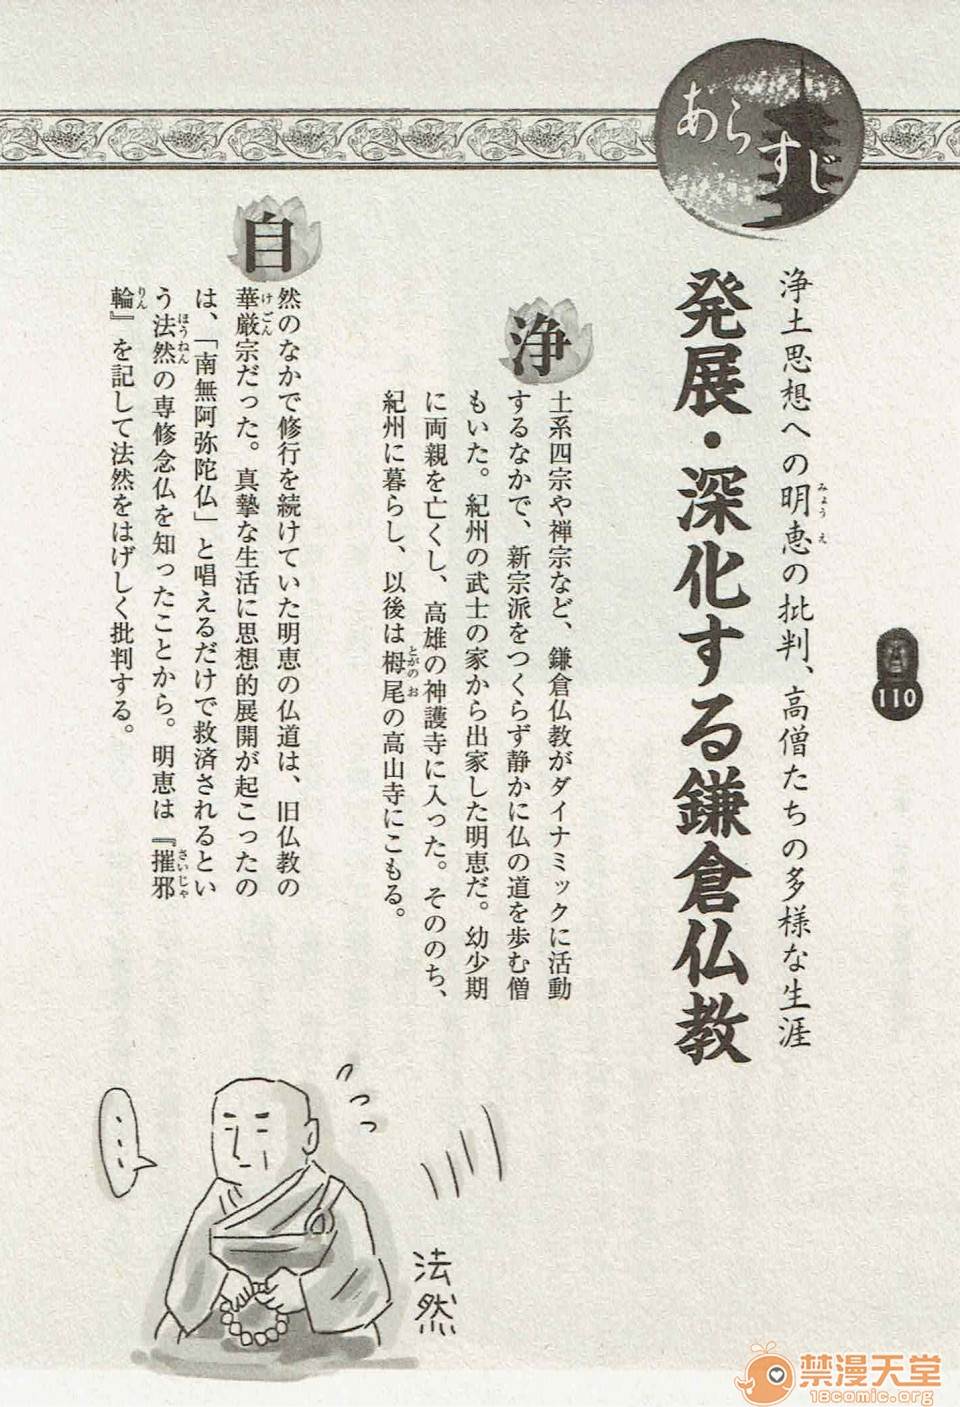 あらすじ
浄土思想への明恵の批判、高僧たちの多様な生涯
みょうえ
発展・深化する鎌倉仏教
110
浄土系四宗や禅宗など、鎌倉仏教がダイナミックに活動
するなかで、新宗派をつくらず静かに仏の道を歩む僧
もいた。紀州の武士の家から出家した明恵だ。幼少期
に両親を亡くし、高雄の神護寺に入った。そののち、
紀州に暮らし、以後は栂尾の高山寺にこもる。
とがのお
自然のなかで修行を続けていた明恵の仏道は、旧仏教の
華厳宗だった。真摯な生活に思想的展開が起こったの
けごん
は、「南無阿弥陀仏」と唱えるだけで救済されるとい
う法然の専修念仏を知ったことから。明恵は『摧邪
ほうねん
さいじゃ
輪』を記して法然をはげしく批判する。
りん
…
法然
禁漫天堂
18comic.org